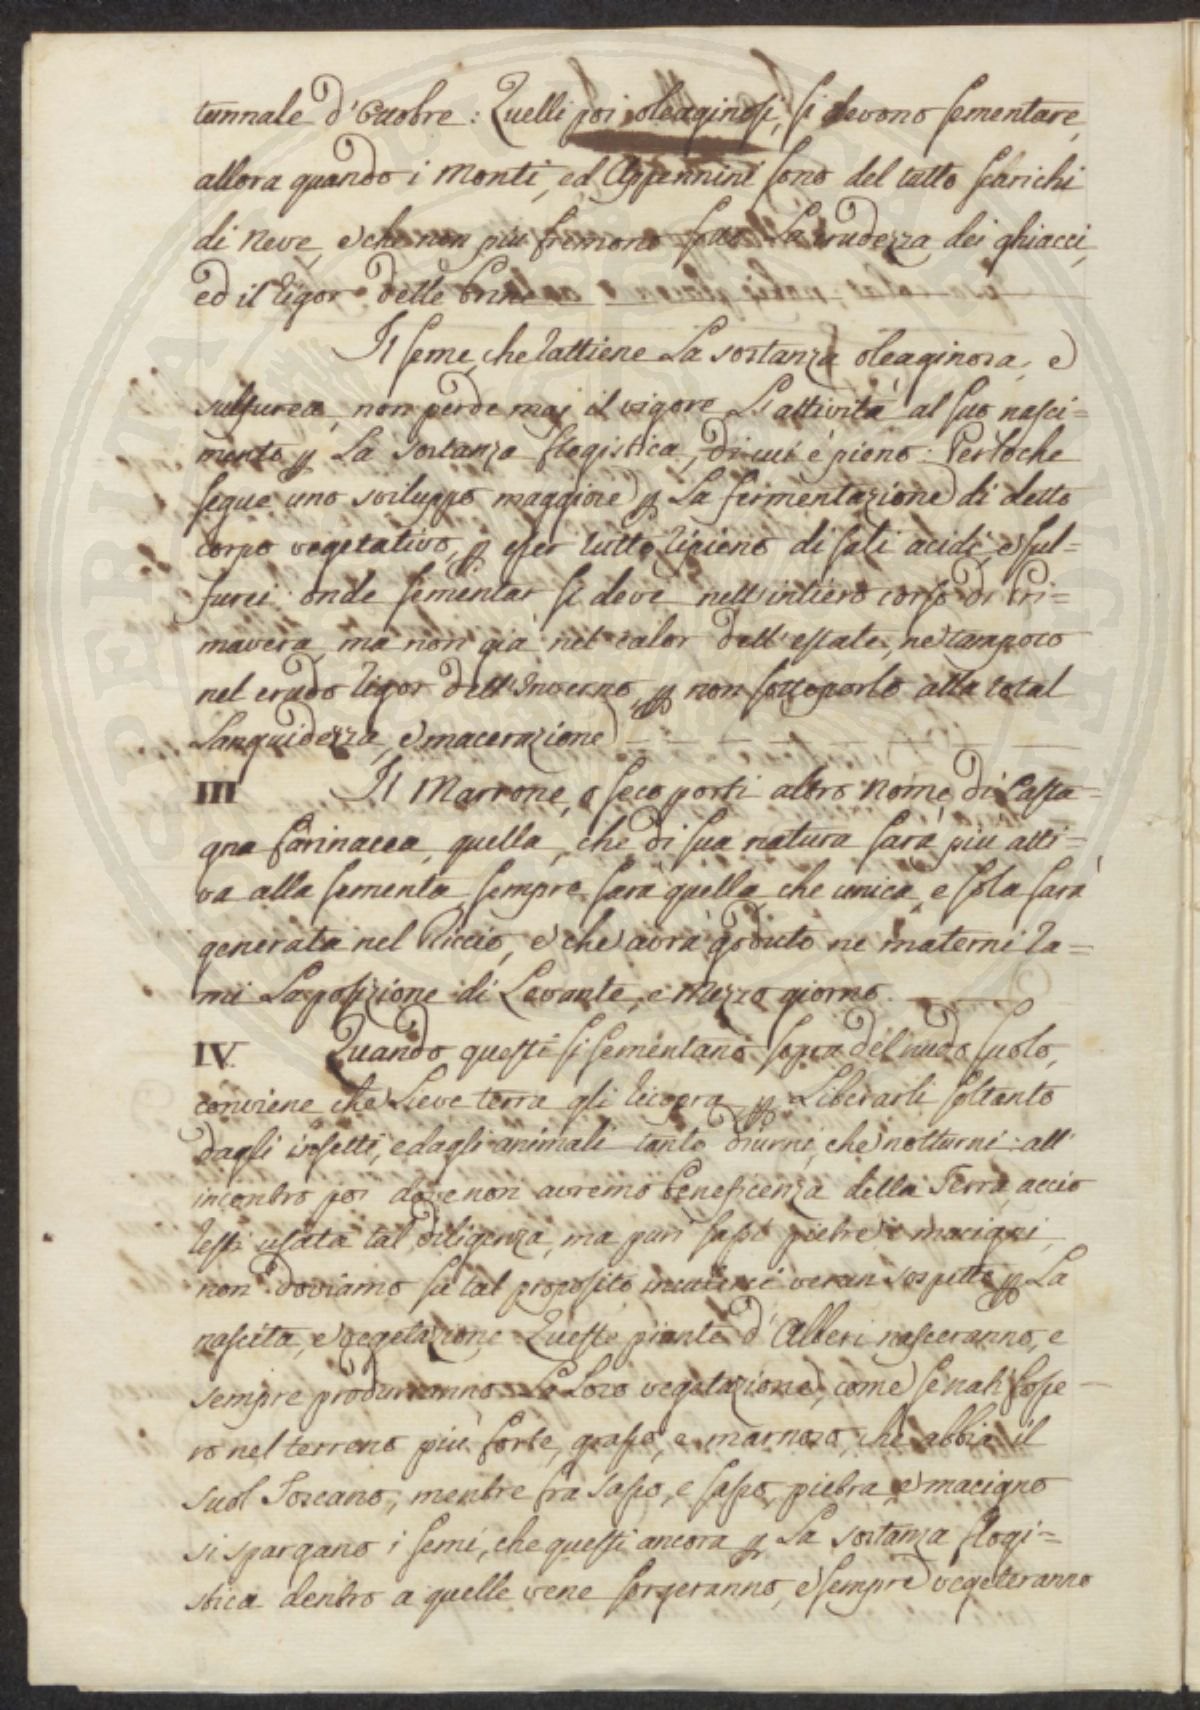 tunnale d'Ottobre: Quelli poi oleaginosi, si devono sementare,
allora quando i Monti, ed Appennini sono del tutto scarichi
di Neve, e che non più fremono sotto la crudezza dei ghiacci,
ed il rigor delle Brine
Il seme, che rattiene La sostanza oleaginosa, e
sulfurea, non perde mai il vigore L'attività al suo nasci=
mento p La sostanza flogistica, di cui è pieno: Perloche
segue uno sviluppo maggiore p La fermentazione di detto
corpo vegetativo, p esser tutto ripieno di sali acidi, e sul=
furei: onde sementar si deve nell'intiero corso di Pri=
mavera, ma non già nel calor dell'estate, ne tampoco
nel crudo rigor dell'Inverno, p non sottoporlo alla total
Languidezza, e macerazione
III Il Marrone, o seco porti altro nome di Casta=
gna farinacea, quella, che di sua natura sarà più atti=
va alla sementa, sempre sarà quella, che unica, e sola sarà
generata nel Riccio, e che avrà goduto ne materni ra=
mi La posizione di Levante, e Mezzo giorno.
IV. Quando questi si sementano sopra del nudo suolo,
conviene che Lieve terra gli ricopra, p Liberarli soltanto
dagli insetti, e dagli animali tanto diurni, che notturni: all'
incontro poi dove non avremo beneficenza della Terra, accio
resti usata tal diligenza, ma puri sassi pietre, e macigni,
non doviamo su tal proposito incuterci verun sospetto p La
nascita, e vegetazione. Queste piante d'Alberi nasceranno, e
sempre produrranno La Loro vegetazione, come se nati fosse=
ro nel terreno più forte, grasso, e marnoso, che abbia il
suol Toscano, mentre fra sasso, e sasso, pietra, e macigno
si spargano i semi, che questi ancora p La sostanza flogi=
stica dentro a quelle vene sorgeranno, e sempre vegeteranno